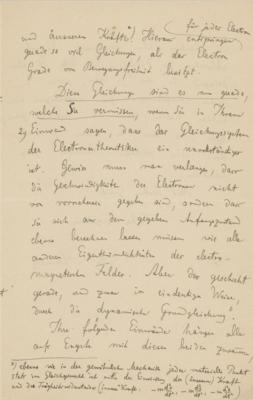 für jedes Electron
und äusseren Kräfte! Hieraus entspringen
gerade so viel Gleichungen, als das Electron
Grade von Bewegungsfreiheit besitzt.
Diese Gleichungen sind es nun gerade,
welche Sie vermissen, wenn Sie in Ihrem
2) Einwand sagen, dass das Gleichungssystem
der Electronentheoretiker ein unvollständiges
ist. Gewiss muss man verlangen, dass
die Geschwindigkeiten der Electronen nicht
von vornherein gegeben sind, sondern dass
sie sich aus dem gegebenen Anfangszustand
ebenso berechnen lassen müssen wie alle
anderen Eigentümlichkeiten des electro-
magnetischen Feldes. Aber das geschieht
gerade, und zwar in eindeutiger Weise,
durch die dynamische Grundgleichung.
Ihre folgenden Einwände hängen alle
aufs Engste mit diesen beiden zusammen,
*) ebenso wie in der gewöhnlichen Mechanik jeder materielle Punkt
stets im Gleichgewicht ist unter der Einwirkung der (äusseren) Kraft
und des Trägheitswiderstandes